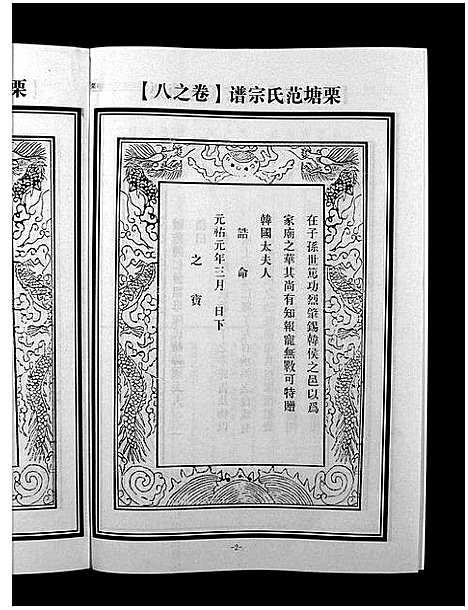 栗
栗塘范氏宗谱【卷之八】
在子孫世範功烈肇錫韓侯之邑以爲
家廟之華其尚有知報寵無斁可特贈
韓國太夫人
誥命
元祐元年三月 日下
之寶
-2-